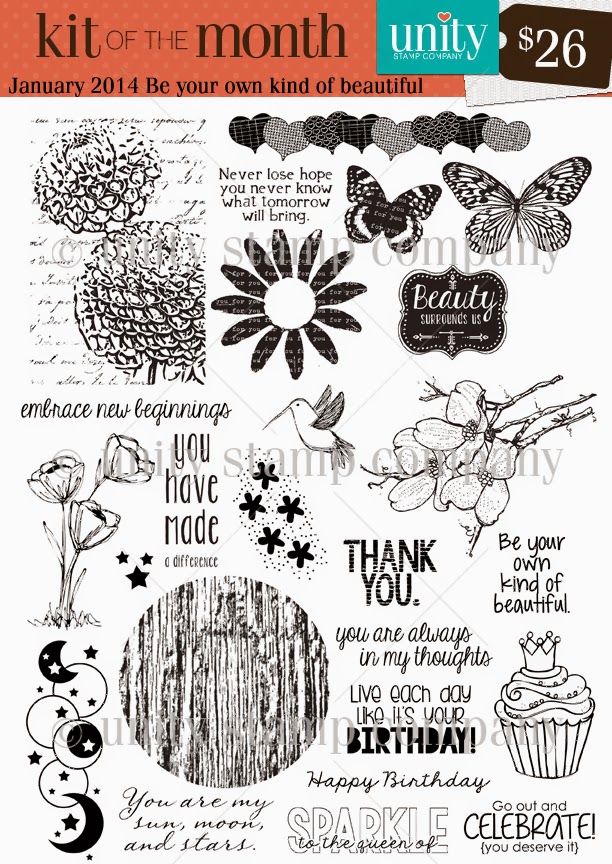 kit OF THE month
unity
STAMP COMPANY
$26
January 2014 Be your own kind of beautiful
Never lose hope
you never know
what tomorrow
will bring.
for you
Beauty
SURROUNDS US
© unity stamp company
embrace new beginnings
you
have
made
a difference
© unity stamp company
THANK
YOU.
Be your
own
kind of
beautiful.
you are always
in my thoughts
Live each day
like it's your
BIRTHDAY!
© unity stamp company
Happy Birthday
You are my
sun, moon,
and stars.
SPARKLE
to the queen of
Go out and
CELEBRATE!
{you deserve it}